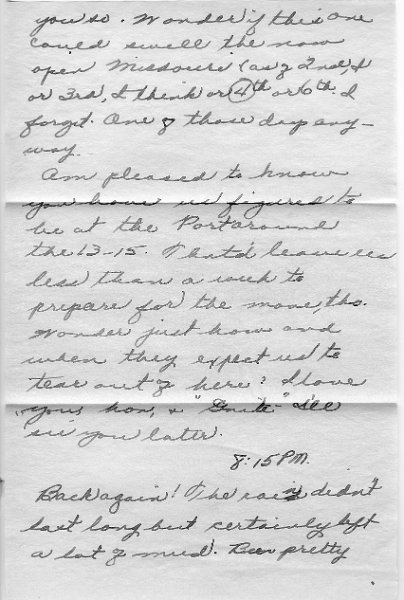 you so. Wonder if this one
could swell the now
open Missouri (as of 2nd, I
or 3rd, I think or 4th or 6th. I
forgot. One of those day any-
way.
Am pleased to know
you have us figured to
be at the Port around
the 13-15. That'd leave us
less than a week to
prepare for the move, tho.
Wonder just how and
when they expect us to
tear out of here? I love
you, hon, & I'll
see you later.
8:15 PM.
Back again! The rain didn't
last long but certainly left
a lot of mud. Been pretty